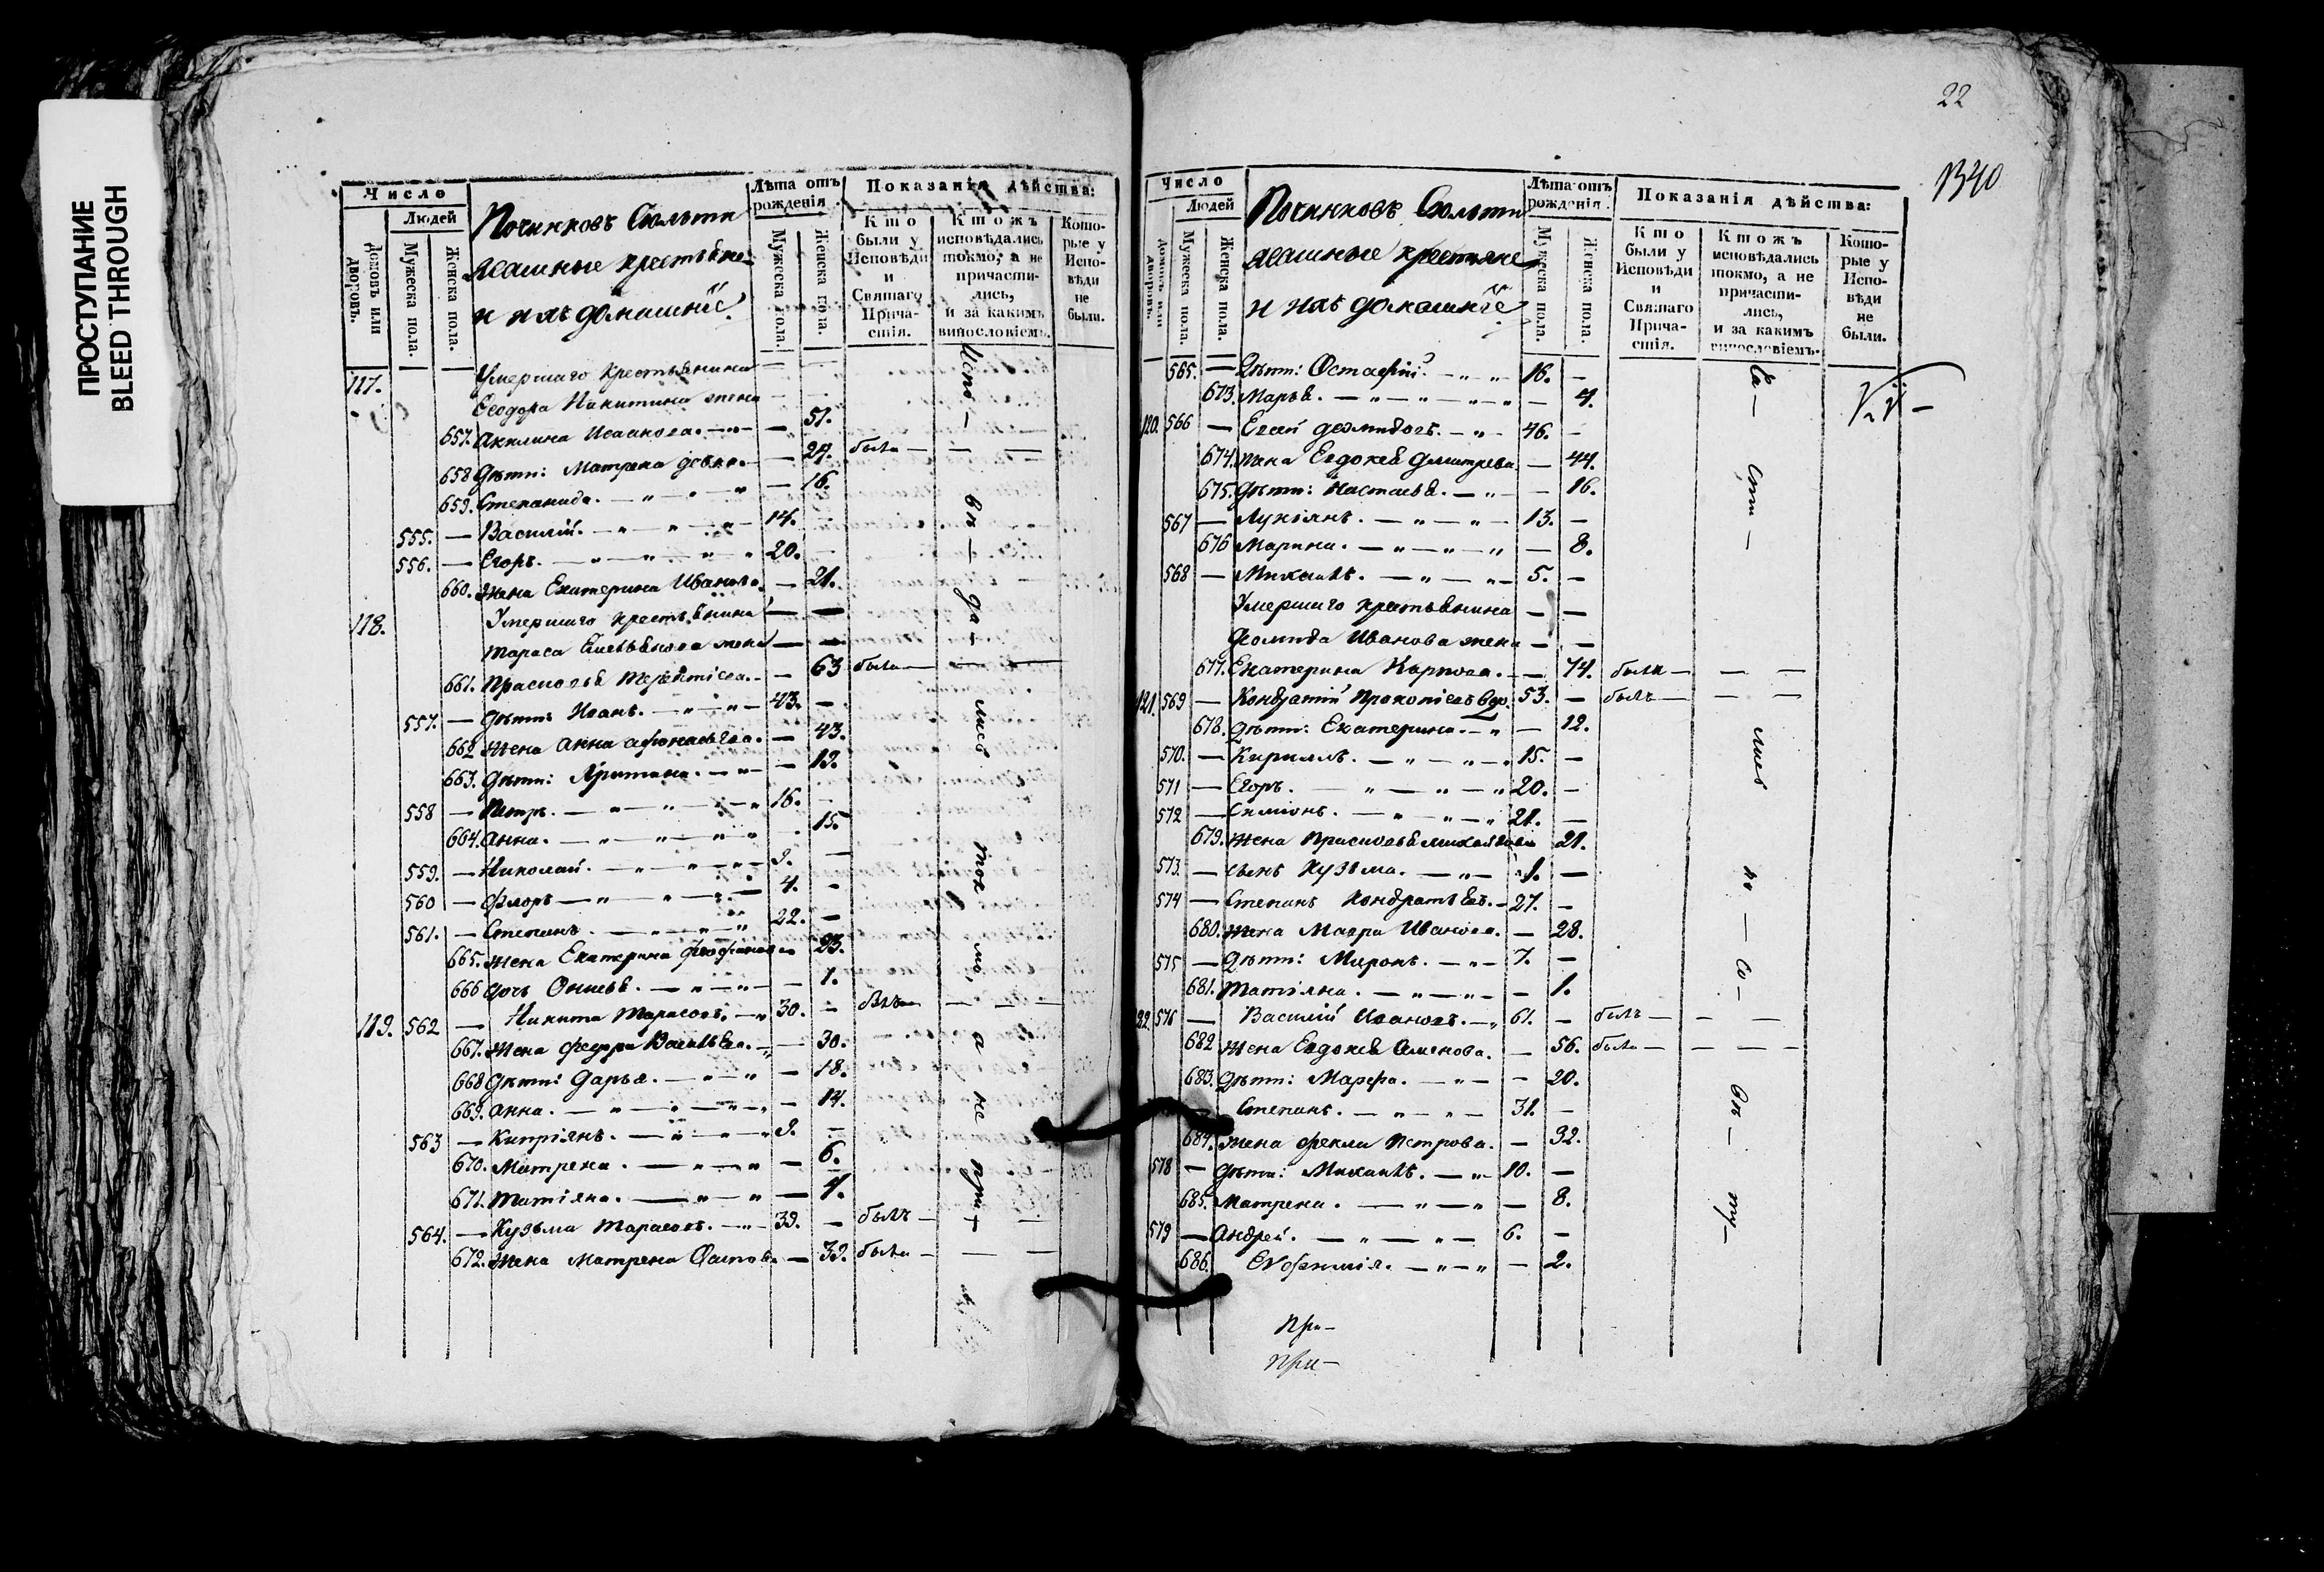 ПРОСТУПАНИЕ
BLEED THROUGH
Число
Людей
Домовъ или дворовъ.
Мужеска пола.
Женска пола.
Починковъ Сюльти
ясашные крестьяне
и ихъ домашніе
Лѣта отъ рожденія
Мужеска пола.
Женска пола.
Показанія дѣйства:
Кто были у Исповѣди и Святаго Причастія.
Ктожъ исповѣдались токмо, а не причастились, и за какимъ винословіемъ.
Которые у Исповѣди не были.
117. Умершаго крестьянина — —
Ѳеодора Никитина жена — —
657. Акилина Исаакова. — 51.
658 Дѣти: Матрена девка — 24. была —
659. Степанида. — 16.
555. — Василій. — 14. —
556. — Егоръ. — 20. —
660. Жена Екатерина Иванова. — 21.
118. Умершаго крестьянина — —
Тараса жена — —
661. Прасковья — 63 была —
557. — Дѣти: Иванъ. — 43. —
662 Жена Анна — 43.
663. Дѣти: — 19.
558 — Петръ. — 16. —
664. Анна. — 15.
559. — Николай. — 9. —
560 — Флоръ — 4. —
561. — Степанъ. — 22. —
665. Жена Екатерина — 23.
666 дочь — 1.
119. 562 — Никита Тарасовъ. — 30. — былъ —
667. Жена Васильева. — 30.
668 Дѣти: Дарья. — 18.
669. Анна. — 14.
563 — Кипріянъ. — 9. —
670. Матрена. — 6.
671. Татіяна. — 4.
564. — Кузьма Тарасовъ. — 39. — былъ —
672. Жена Матрена — 39. была —
Испо — вѣ — да — лись ток мо, а не при —
22
1340
Число
Людей
Домовъ или дворовъ.
Мужеска пола.
Женска пола.
Починковъ Сюльти
ясашные крестьяне
и ихъ домашніе
Лѣта отъ рожденія.
Мужеска пола.
Женска пола.
Показанія дѣйства:
Кто были у Исповѣди и Святаго Причастія.
Ктожъ исповѣдались токмо, а не причастились, и за какимъ винословіемъ.
Которые у Исповѣди не были.
565. — Дѣти: Остафій. — 16. —
673. Марья. — 4.
120. 566 — — 46. —
674. Жена Евдокея Дмитрева — 44.
675. Дѣти: Настасья. — 16.
567 — Лукіянъ. — 13. —
676 Марина. — 8.
568 — Михаилъ. — 5. —
Умершаго крестьянина — —
Иванова жена — —
677. Екатерина Карпова. — 74. была —
121. 569 — Кондратій Прокопіевъ вдо. 53. — былъ —
678. Дѣти: Екатерина. — 12.
570. — Кириллъ. — 15. —
571 — Егоръ. — 20. —
572 — Симіонъ. — 21. —
679. Жена Прасковья 21.
573. — сынъ Кузьма. — 1. —
574 — Степанъ Кондратьевъ. — 27. —
680. Жена Мавра Иванова. — 28.
575 — Дѣти: Миронъ. — 7. —
681. Татіяна. — 1.
576 — Василій Ивановъ. — 61. — былъ —
682 Жена Евдокея Семенова. — 56. была —
683. Дѣти: Марфа. — 20.
Степанъ. — 31. —
684. Жена Фекла Петрова. — 32.
578 — Дѣти: Михаилъ. — 10. —
685. Матрена. — 8.
579 — Андрей. — 6. —
686. Евфимія. — 2.
ча — сти — лись по — со — вѣ — ту —
При —
При —